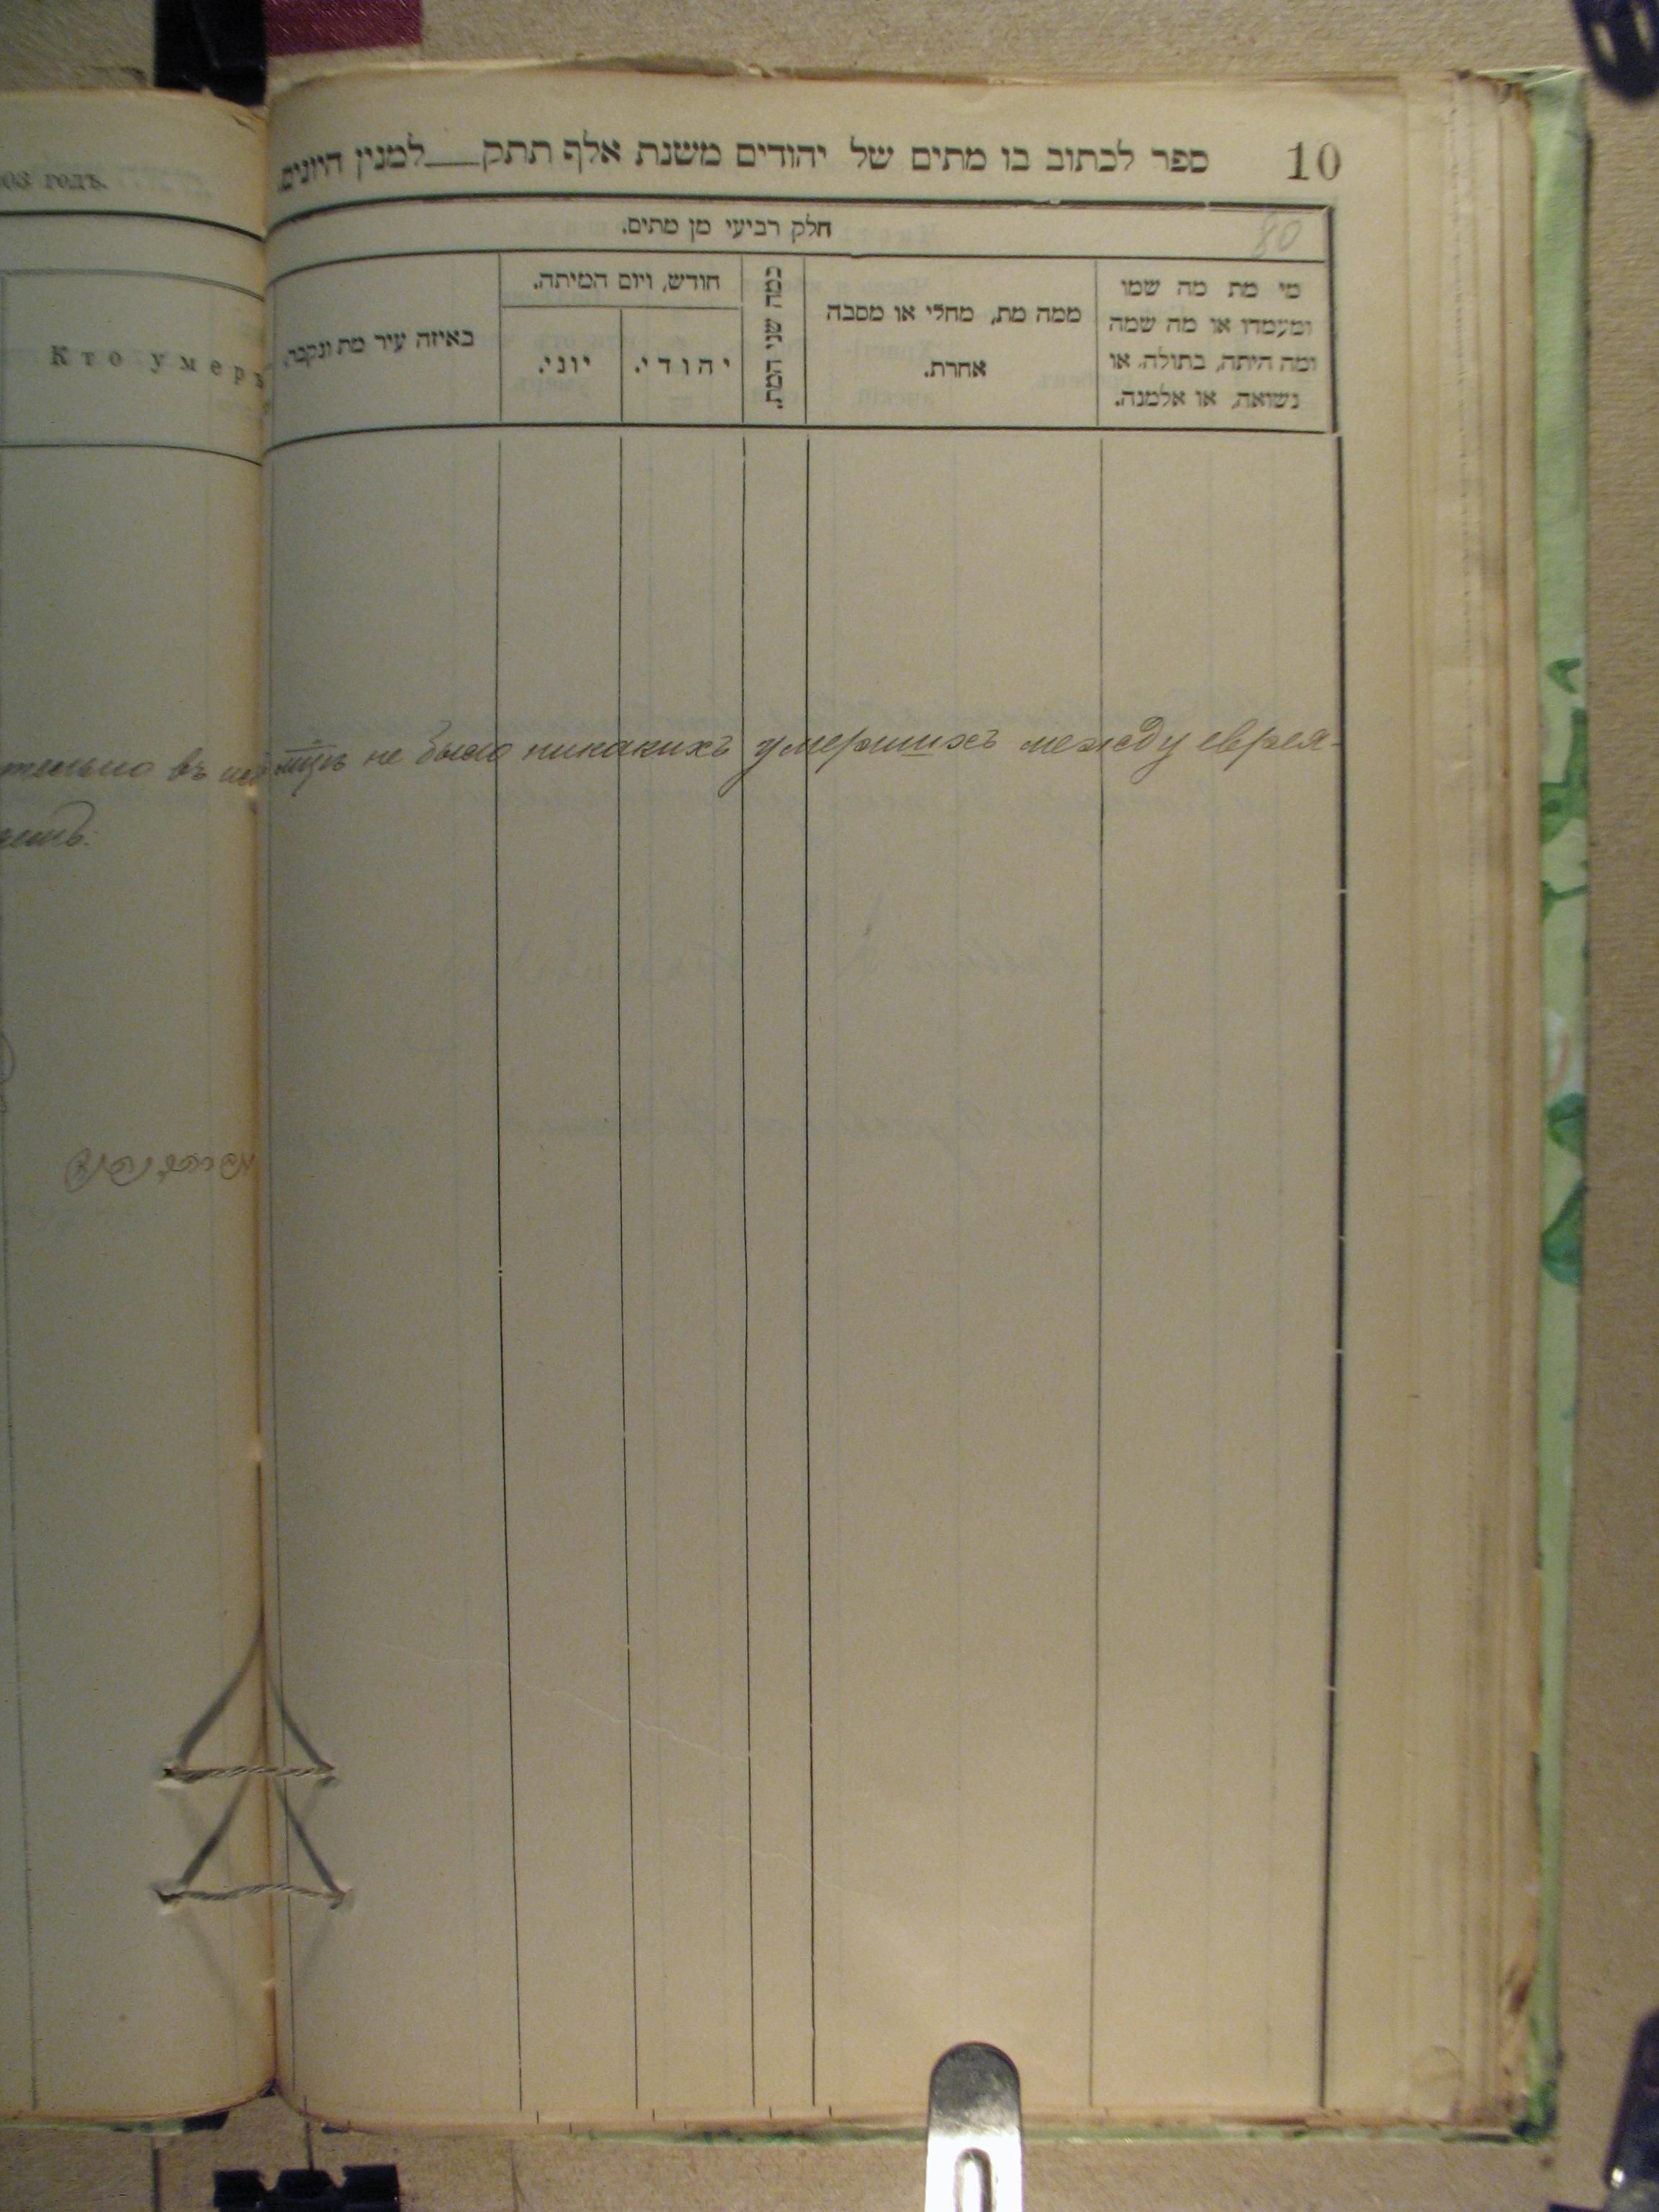 03 годъ.
Кто умеръ
тельно въ
10
ספר לכתוב בו מתים של יהודים משנת אלף תתק___למנין היונים
80
חלק רביעי מן מתים.
מי מת מה שמו
ומעמדו או מה שמה
ומה היתה, בתולה, או
נשואה, או אלמנה.
ממה מת, מחלי או מסבה
אחרת.
כמה שני המת.
חודש, ויום המיתה.
יהודי.
יוני.
באיזה עיר מת ונקבר.
не было никакихъ умершихъ между еврея-